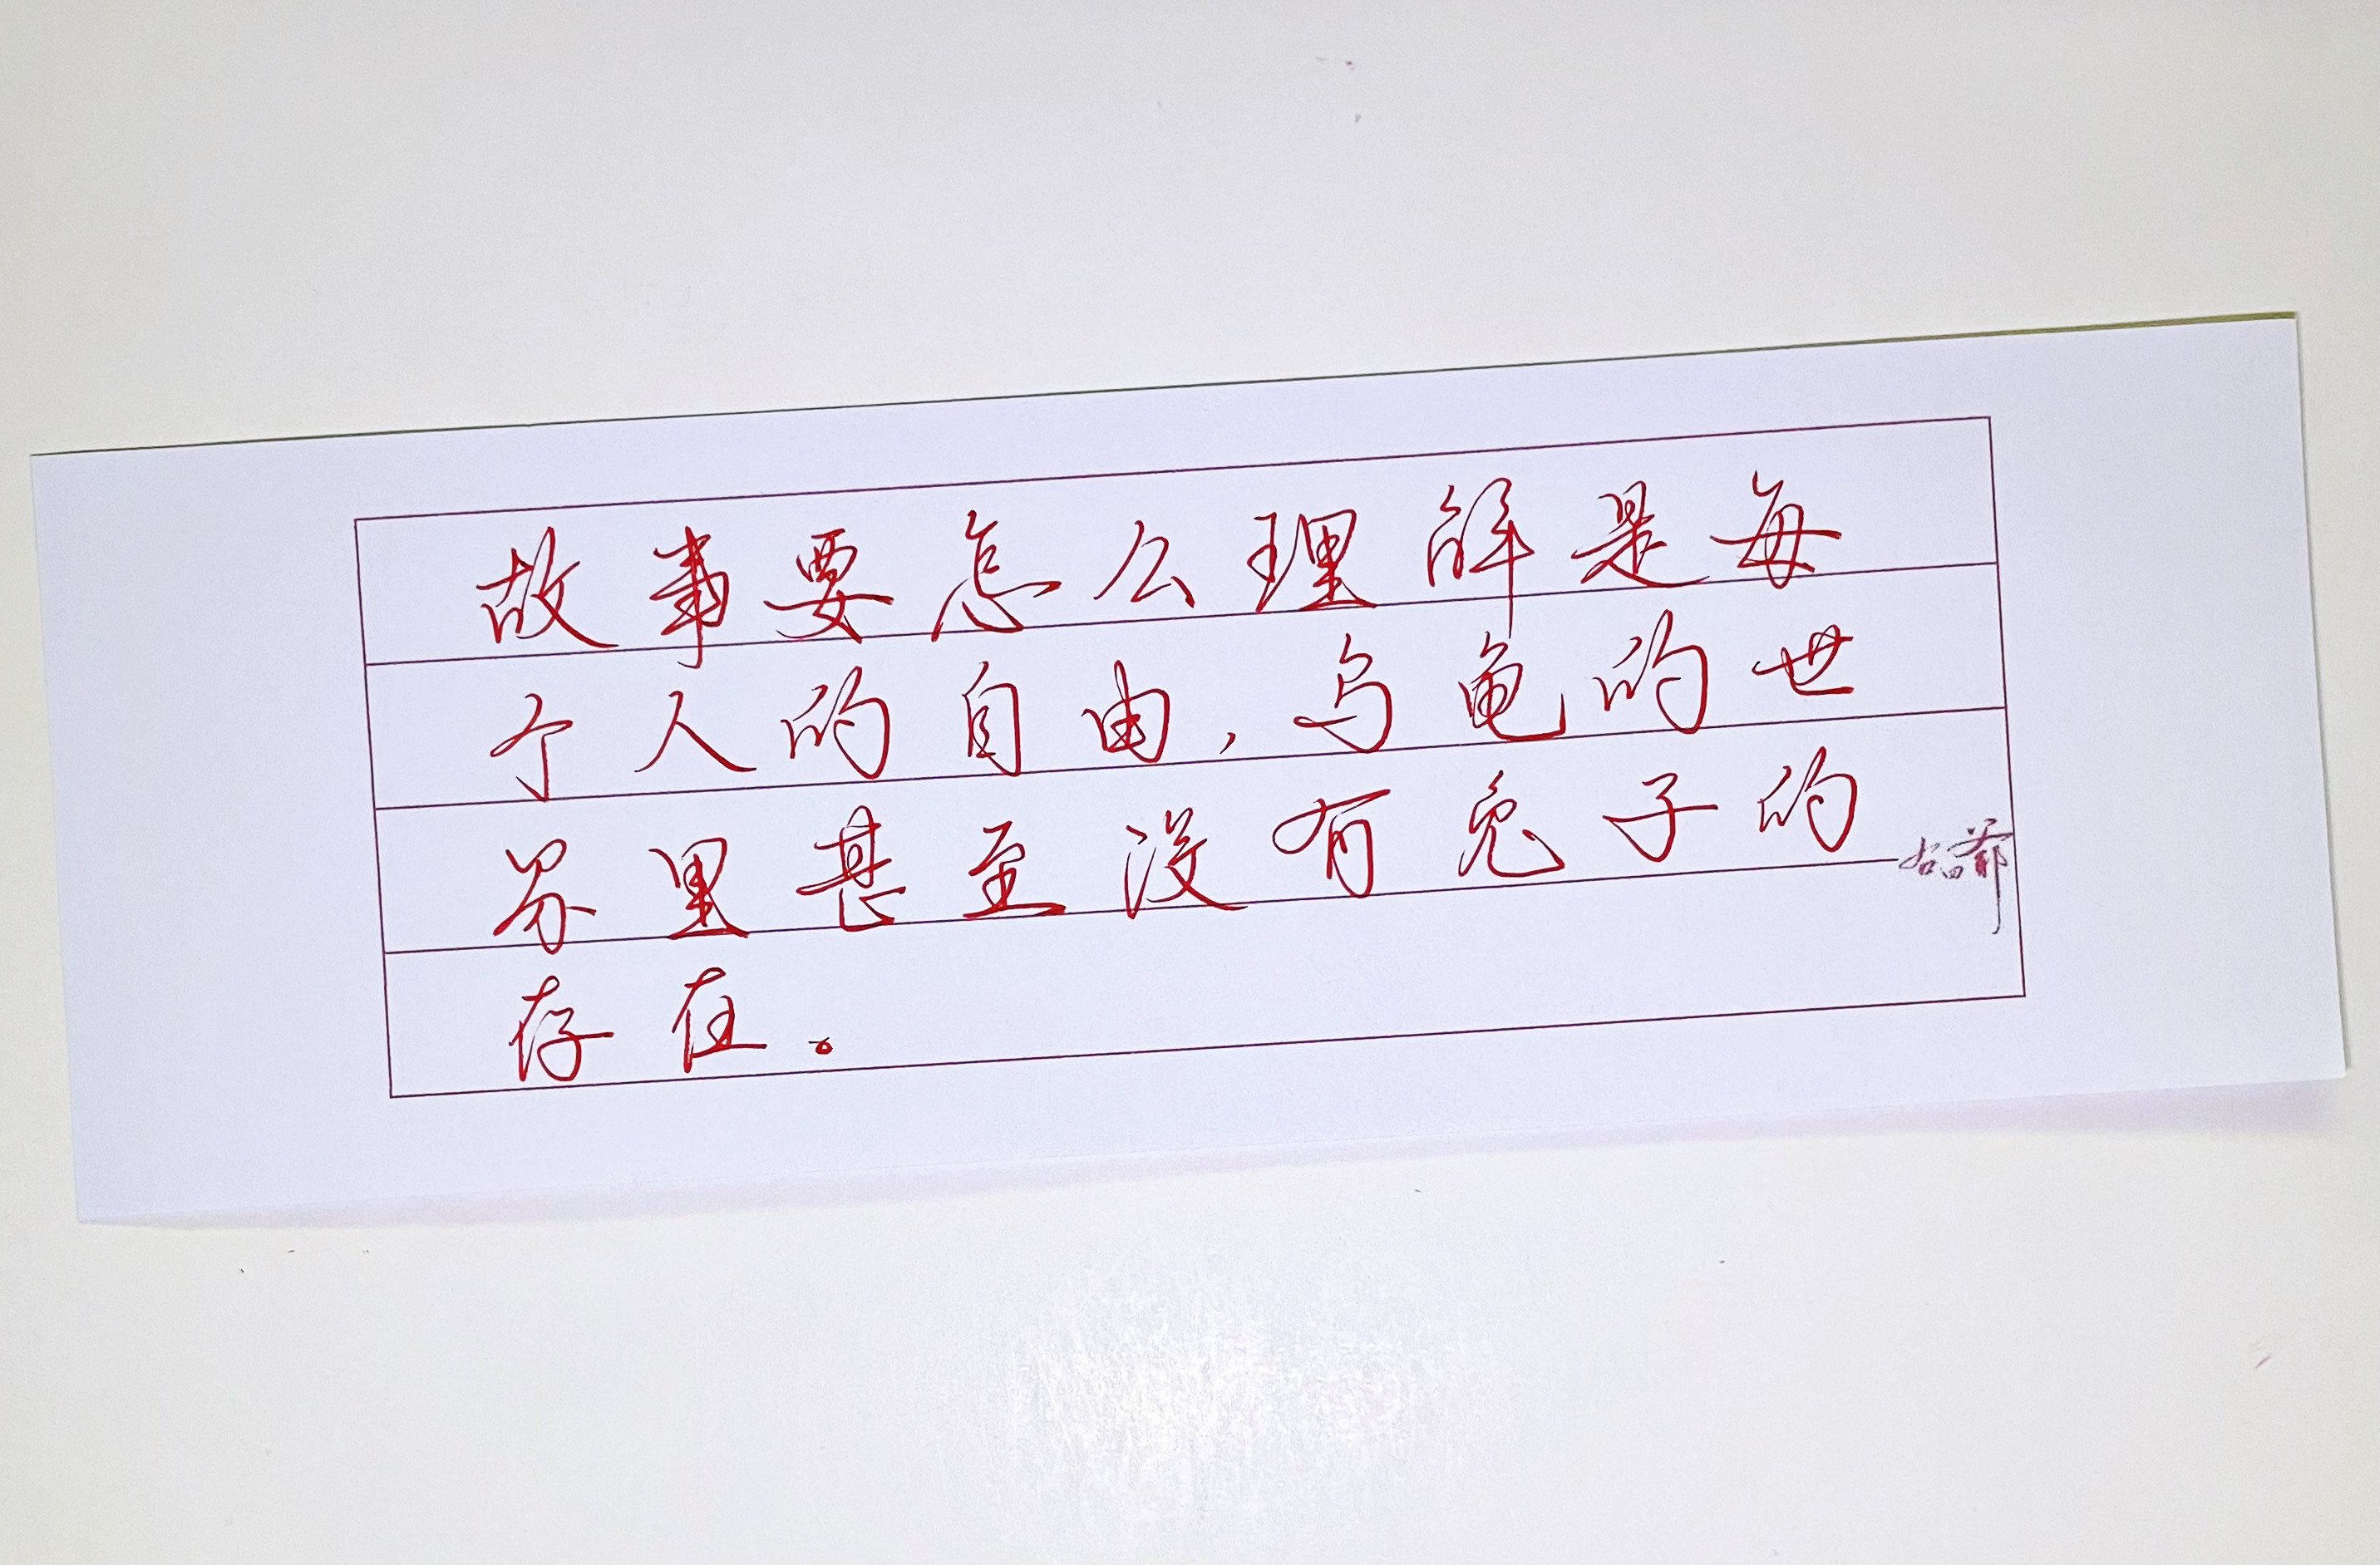 故事要怎么理解是每
个人的自由，乌龟的世
界里甚至没有兔子的
存在。